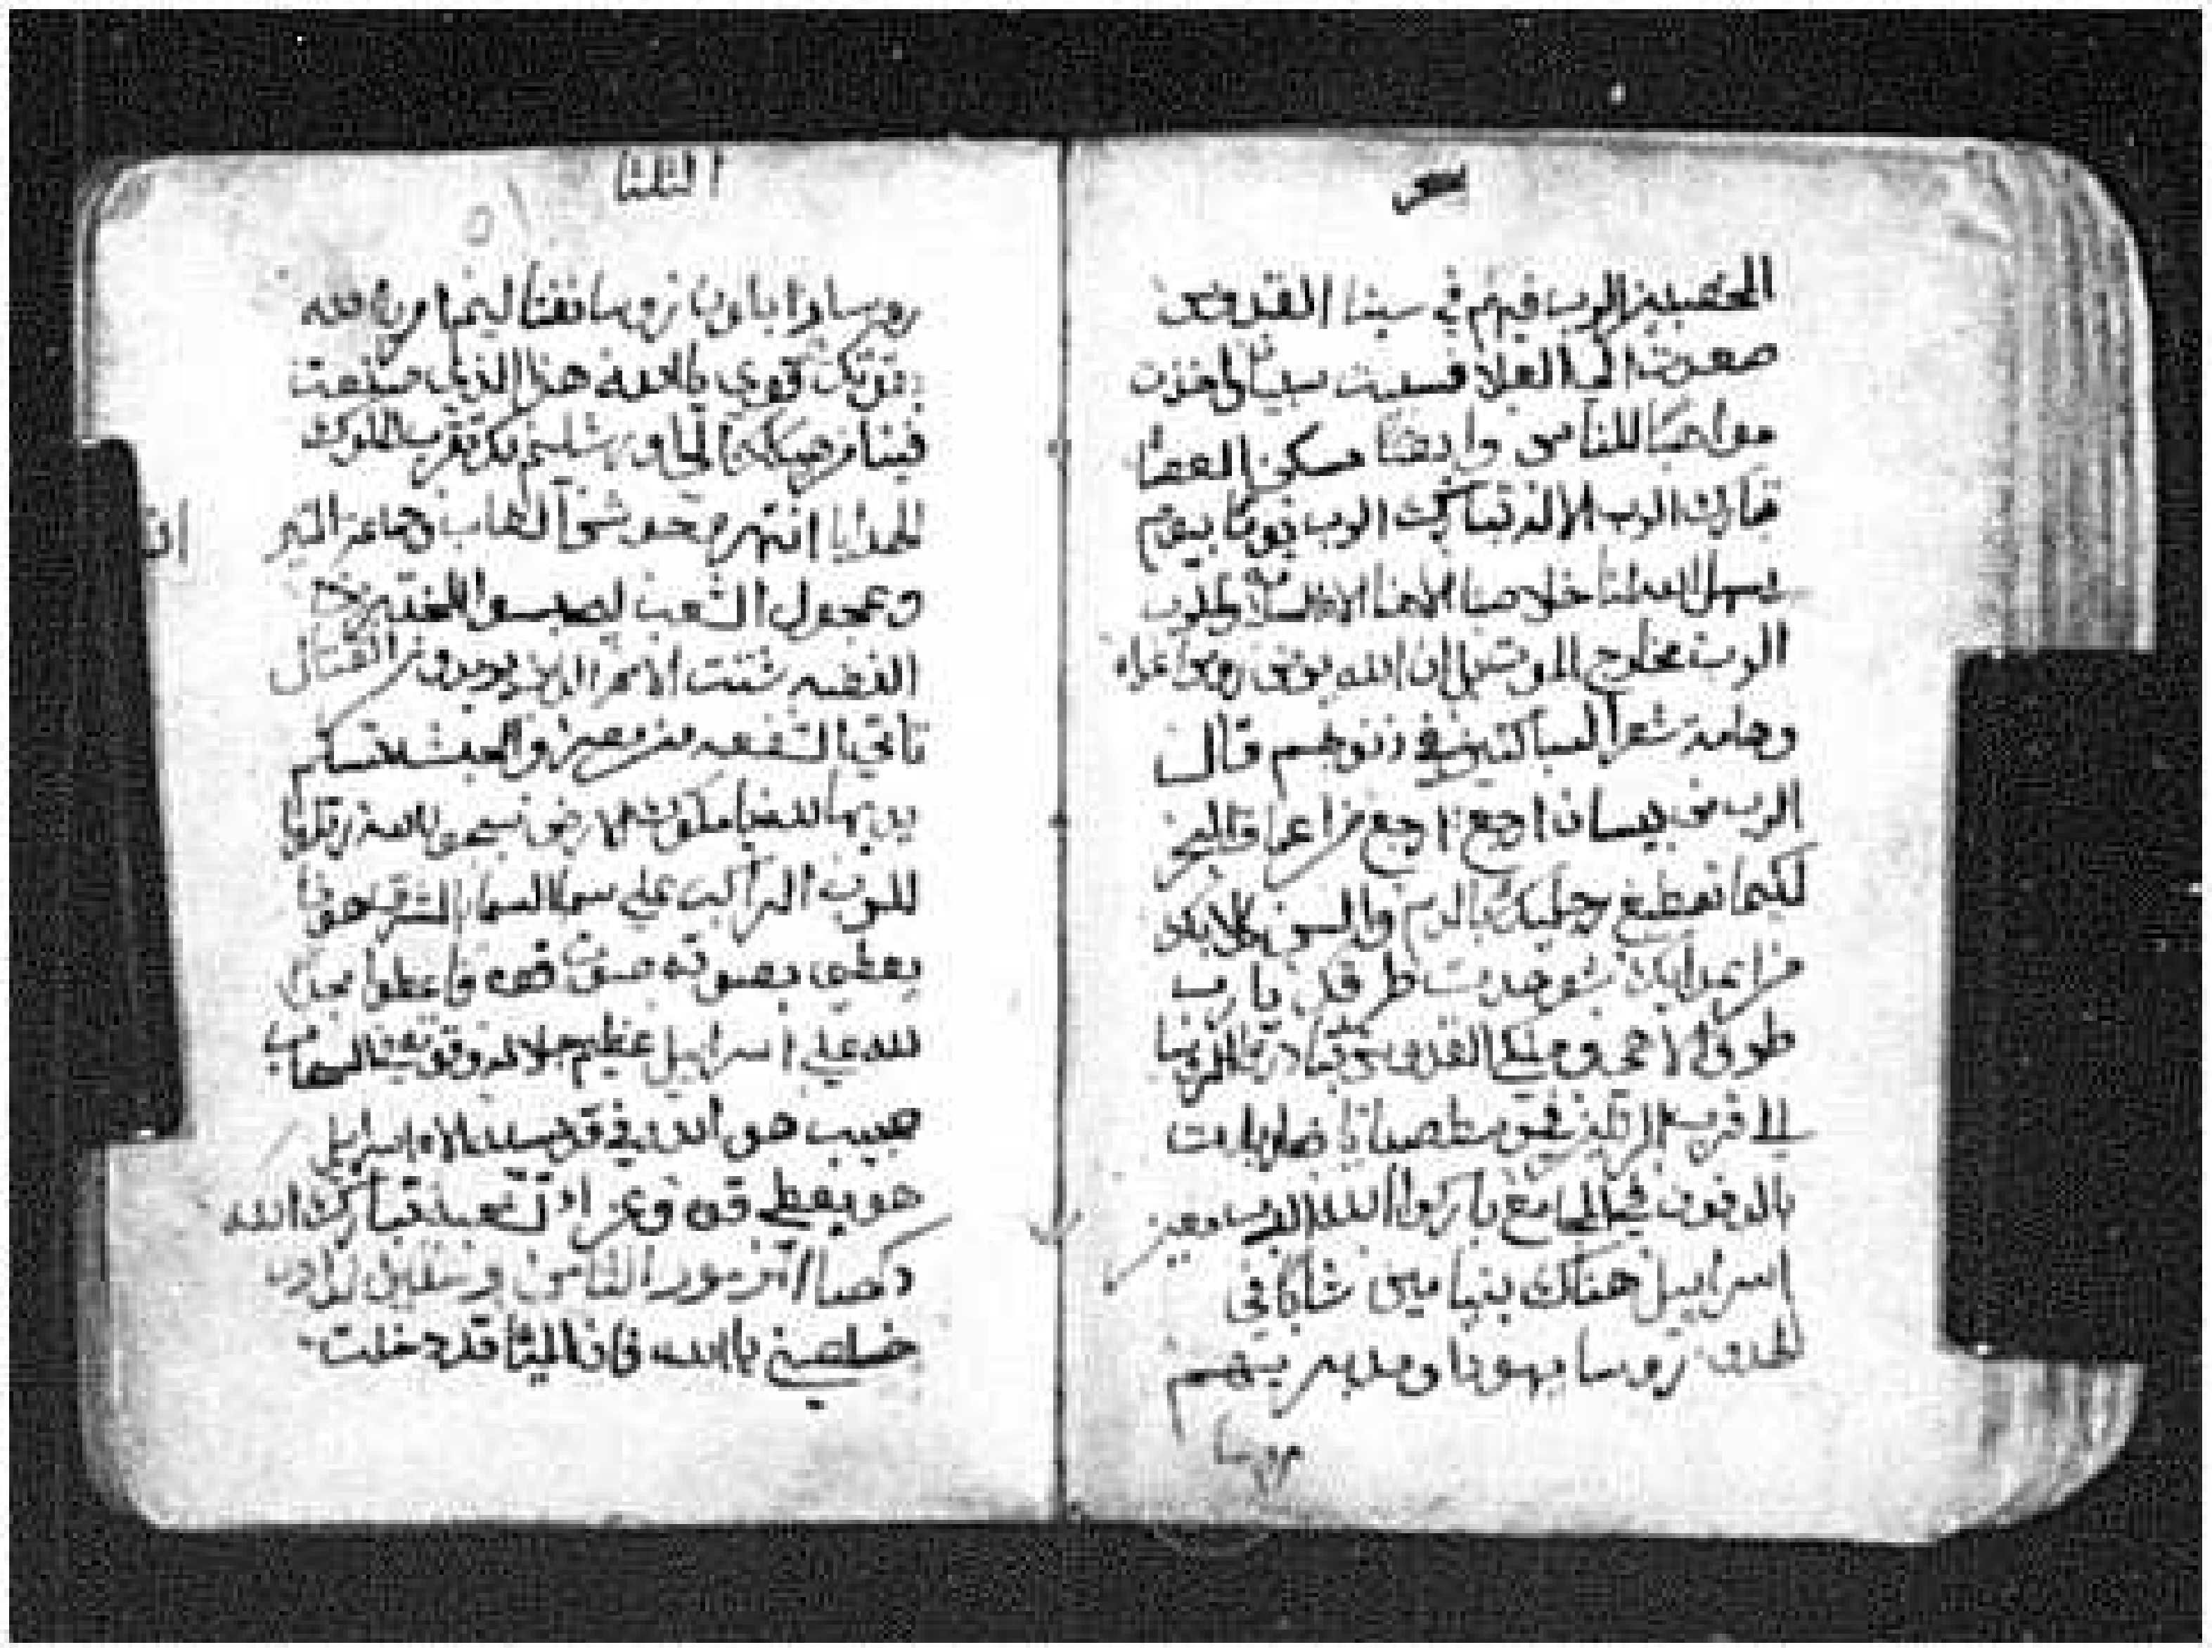 المخصبين الرب فيهم في سينا القدوس
صعدت الي العلا فسبيت سبيًا واخذت
مواهبًا للناس وايضًا مسكن العصا
تبارك الرب الاله تبارك الرب يومًا بيوم
يسهل لنا خلاصنا الاهنا الاه
الرب مخارج الموت بل ان الله يرض روس اعداه
وهامة شعر السالكين في ذنوبهم قال
الرب من بيسان ارجع ارجع من اعماق البحر
لكيما تصطبغ رجليك بالدم والسن كلابك
من اعدايك شوهدت طرقك يا رب
طرق الاهي وملكي القدوس تبادر الروسا
الي قرب المرتلين في وسط صبايا ضاربات
بالدفوف في المجامع باركوا الله الرب من عين
اسرايل هناك بنيامين شابًا في
روسا يهوذا ومدبريهم
روسا
الثلثا
روسا زابلون روسا نفتاليم امر يا الله
بقوتك قوي يا الله هذا الذي صنعت
فينا من هيكلك الي اورشليم لك تقرب الملوك
الهدايا انتهر وحوش الغاب مجامع التيران
وعجول الشعب المختبرين
الفضه شتت الامم الذين يريدون القتال
تاتي الشفعه من مصر والحبشه تسلم
يديها لله يا ممالك الارض سبحوا الله رتلوا
للرب الراكب علي سما السما المشرق هوذا
يعطي بصوته صوت قوه فاعطوا مجدًا
لله علي اسرايل عظيم جلاله وقوته في السحاب
عجيب هو الله في قديسيه الاه اسرايل
هو يعطي قوه وعزا لشعبه تبارك الله
مزمور الثامن وستين لداود
خلصني يا الله فان المياه قد دخلت